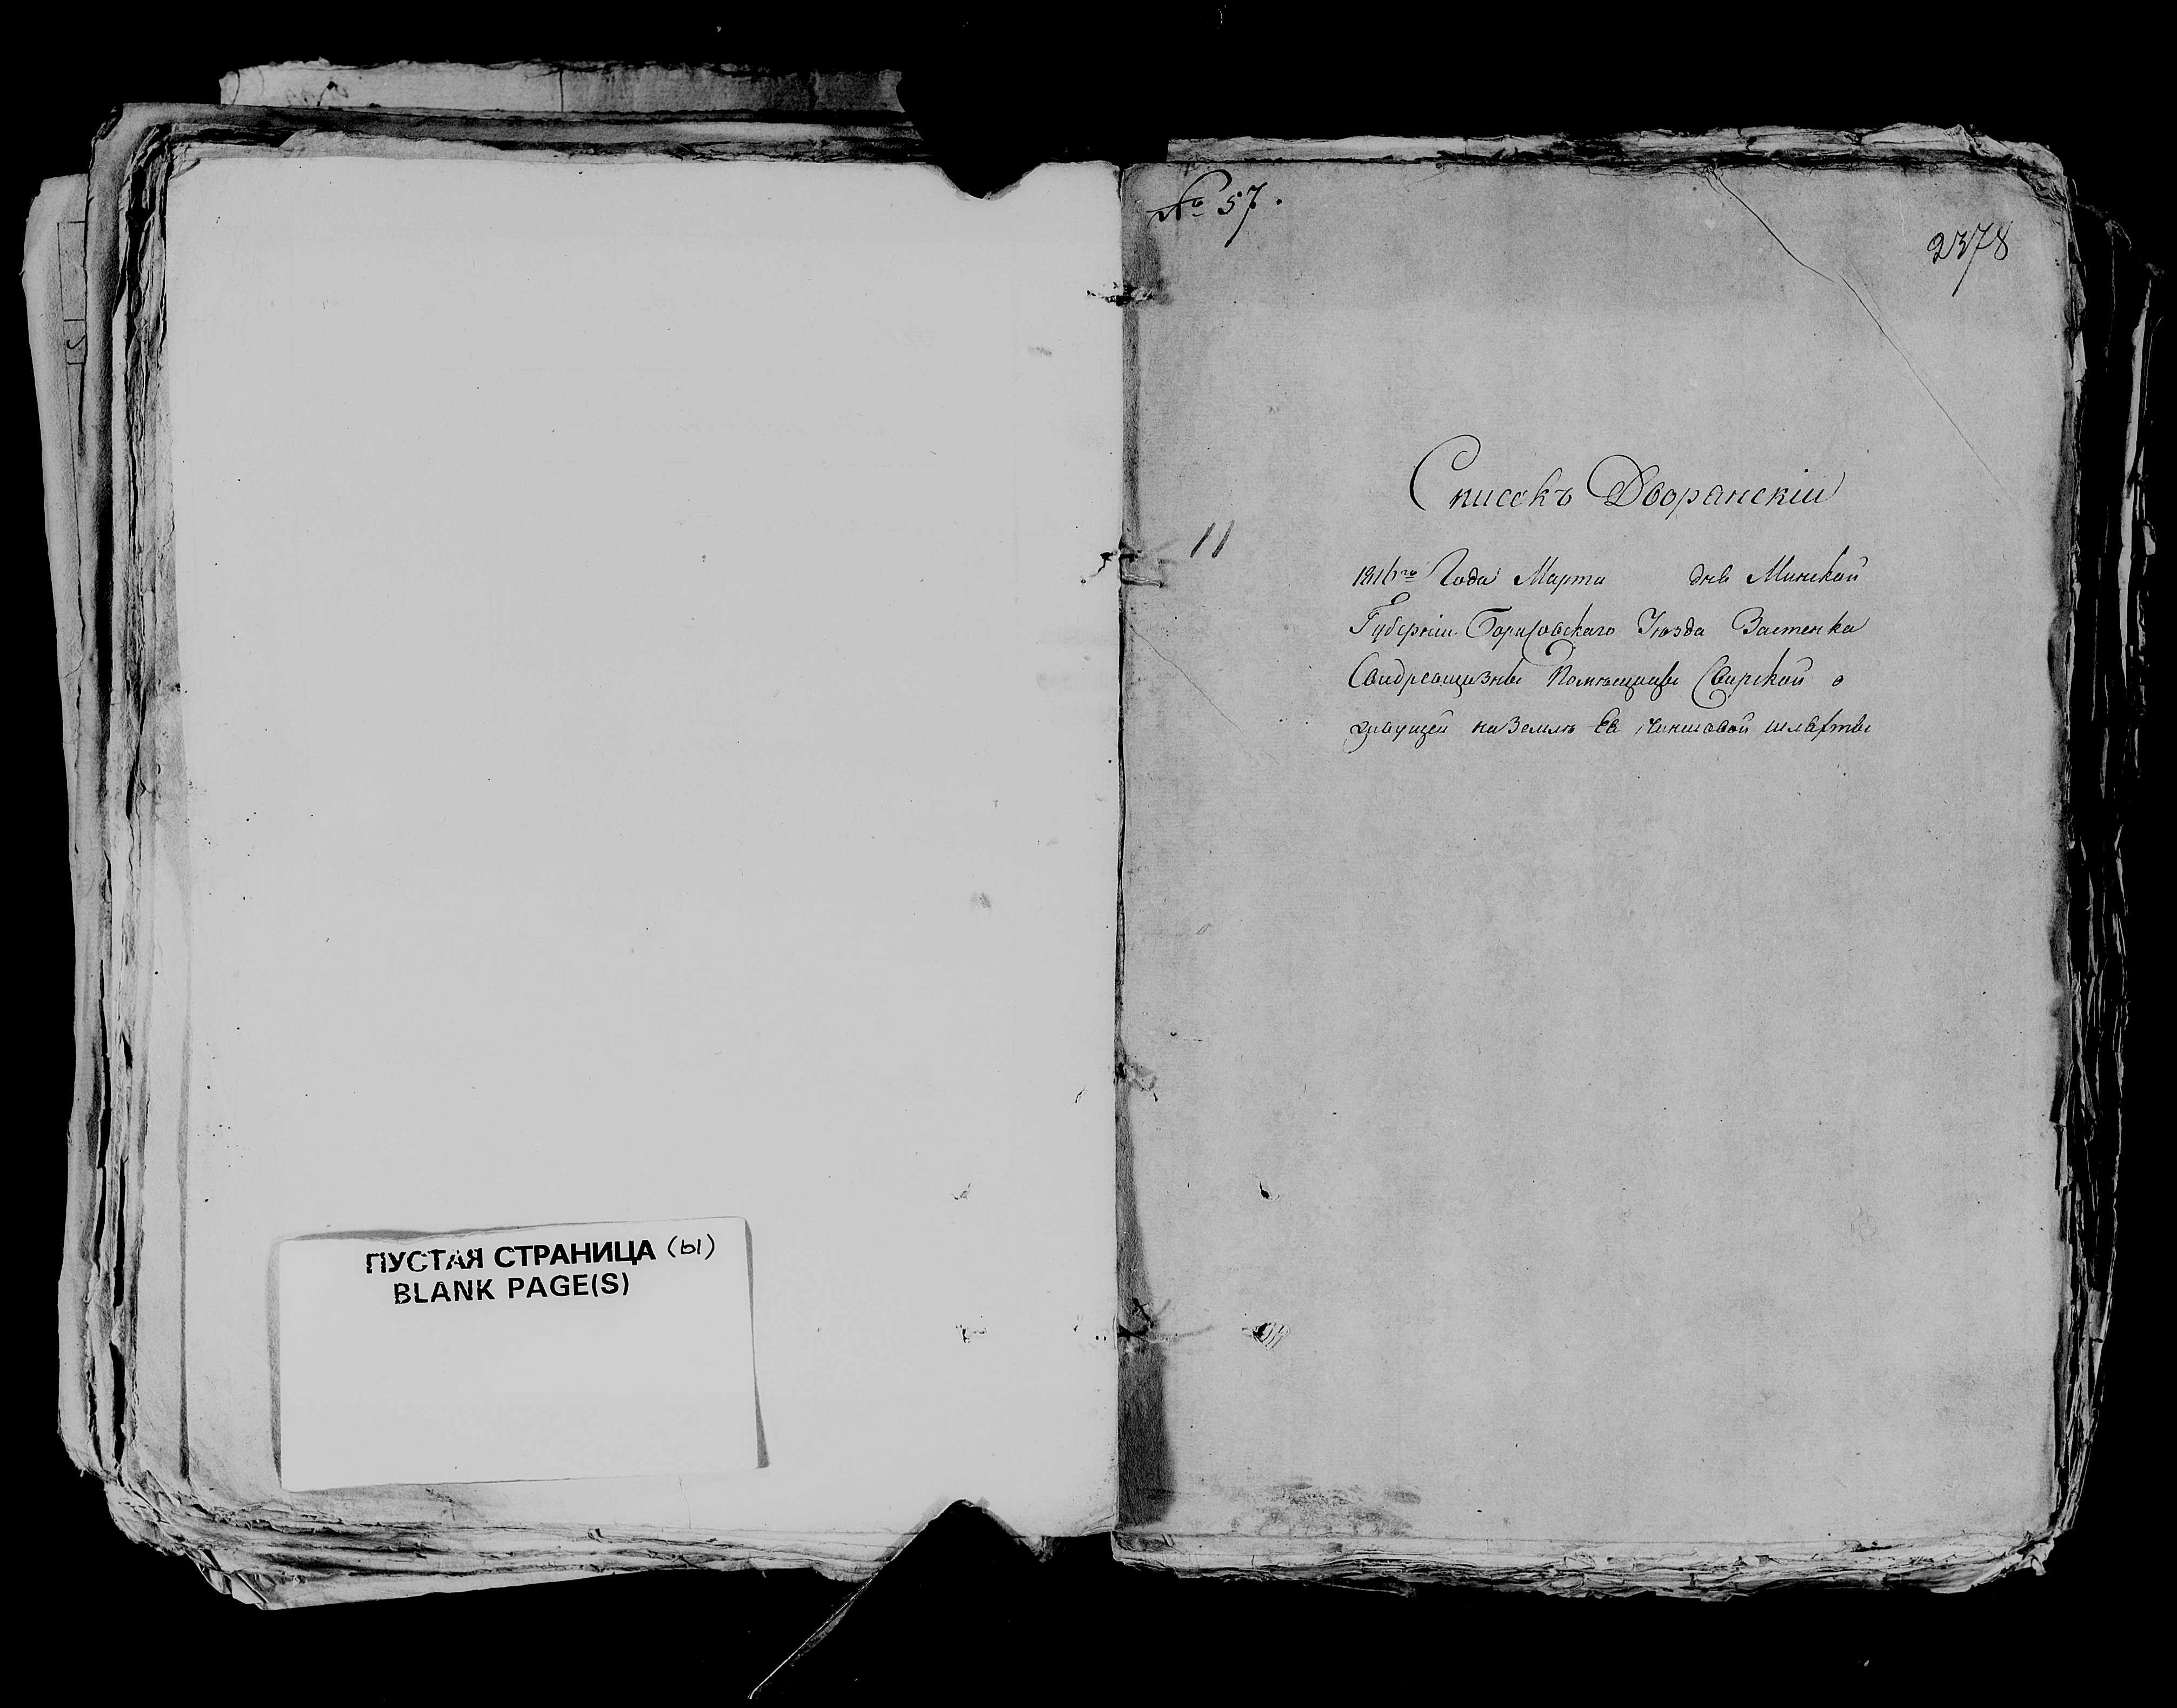 ПУСТАЯ СТРАНИЦА (ы)
BLANK PAGE(S)
№ 57.
2378
11
Списокъ Дворанскіи
1816го Года Марта дня Минской
Губерніи Борисовскаго Уѣзда Застенка
Помѣщицы Свирской о
живущей на Землѣ Ея Чиншовой шляхты